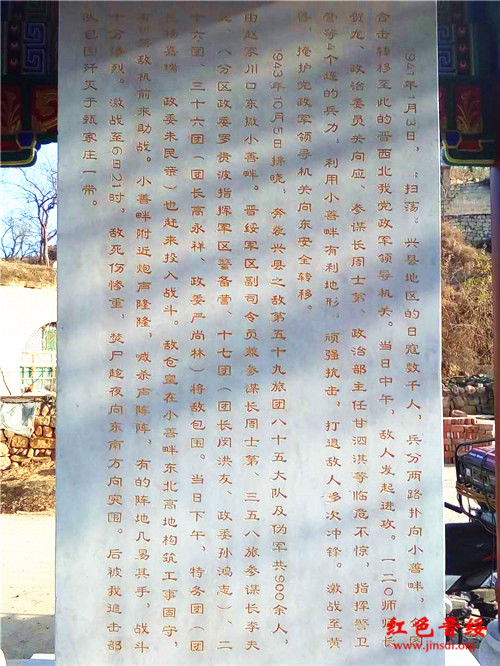 1941年1月3日，"扫荡"兴县地区的日寇数千人，兵分两路扑向小善畔，企图
合击转移至此的晋西北我党政军领导机关。当日中午，敌人发起进攻。一二〇师师长
贺龙、政治委员关向应、参谋长周士第、政治部主任甘泗淇等临危不惊，指挥警卫
营等4个连的兵力，利用小善畔有利地形，顽强抗击，打退敌人多次冲锋。激战至黄
昏，掩护党政军领导机关向东安全转移。
1943年10月5日拂晓，奔袭兴县之敌第五十九旅团八十五大队及伪军共900余人，
由赵家川口东撤小善畔。晋绥军区副司令员兼参谋长周士第、三五八旅参谋长李夫
克、八分区政委罗贵波指挥军区警备营、十七团（团长闵洪友、政委孙鸿志）、二
十六团、三十六团（团长高永祥、政委严尚林）将敌包围。当日下午，特务团（团
长杨嘉瑞 政委朱民亲）也赶来投入战斗。敌仓皇在小善畔东北高地构筑工事固守，
有两架敌机前来助战。小善畔附近炮声隆隆，喊杀声阵阵，有的阵地几易其手，战斗
十分惨烈。激战至6日21时，敌死伤惨重，焚尸趁夜向东南方向突围。后被我追击部
队包围歼灭于甄家庄一带。
红色晋绥
www.jinsui.org